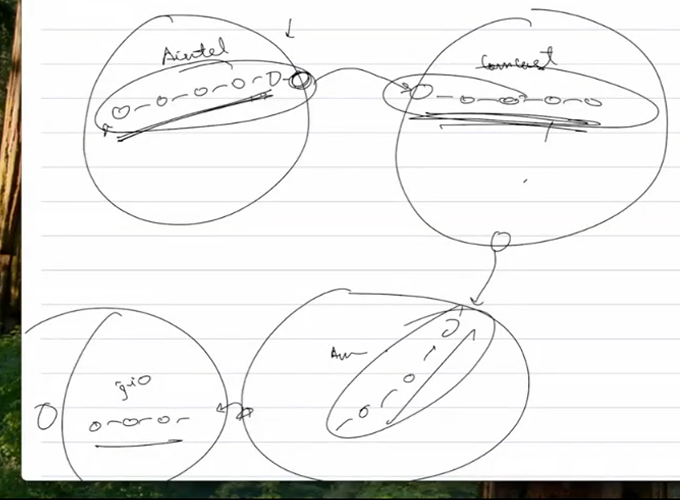 Airtel
Comcast
gio